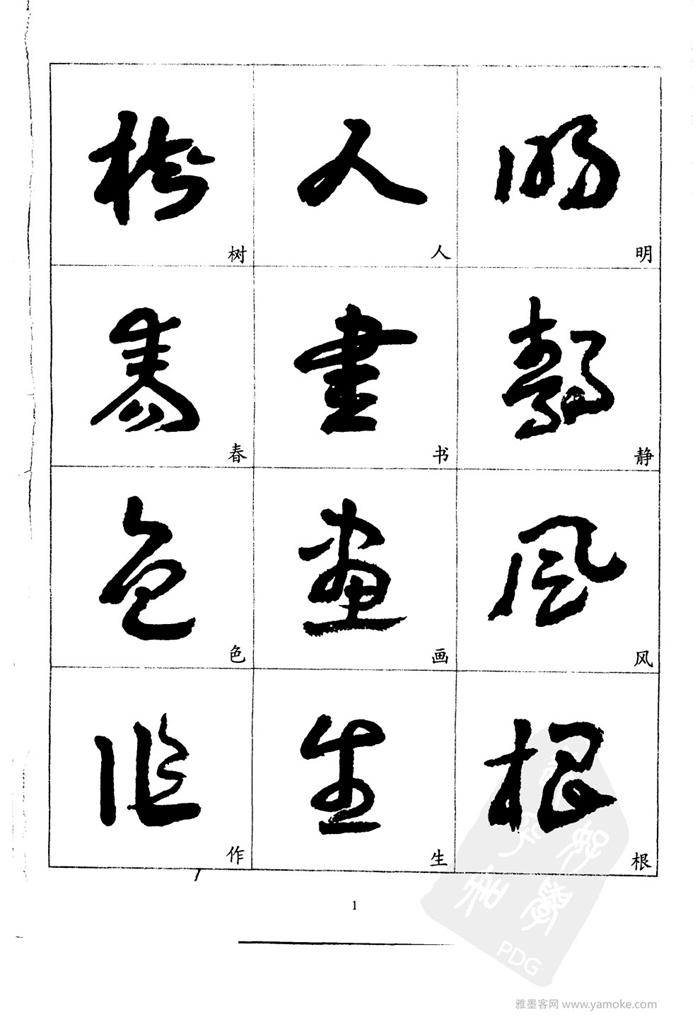 明
明
静
静
风
风
根
根
人
人
書
书
畫
画
生
生
树
树
春
春
色
色
作
作
1
PDG
雅墨客网 www.yamoke.com